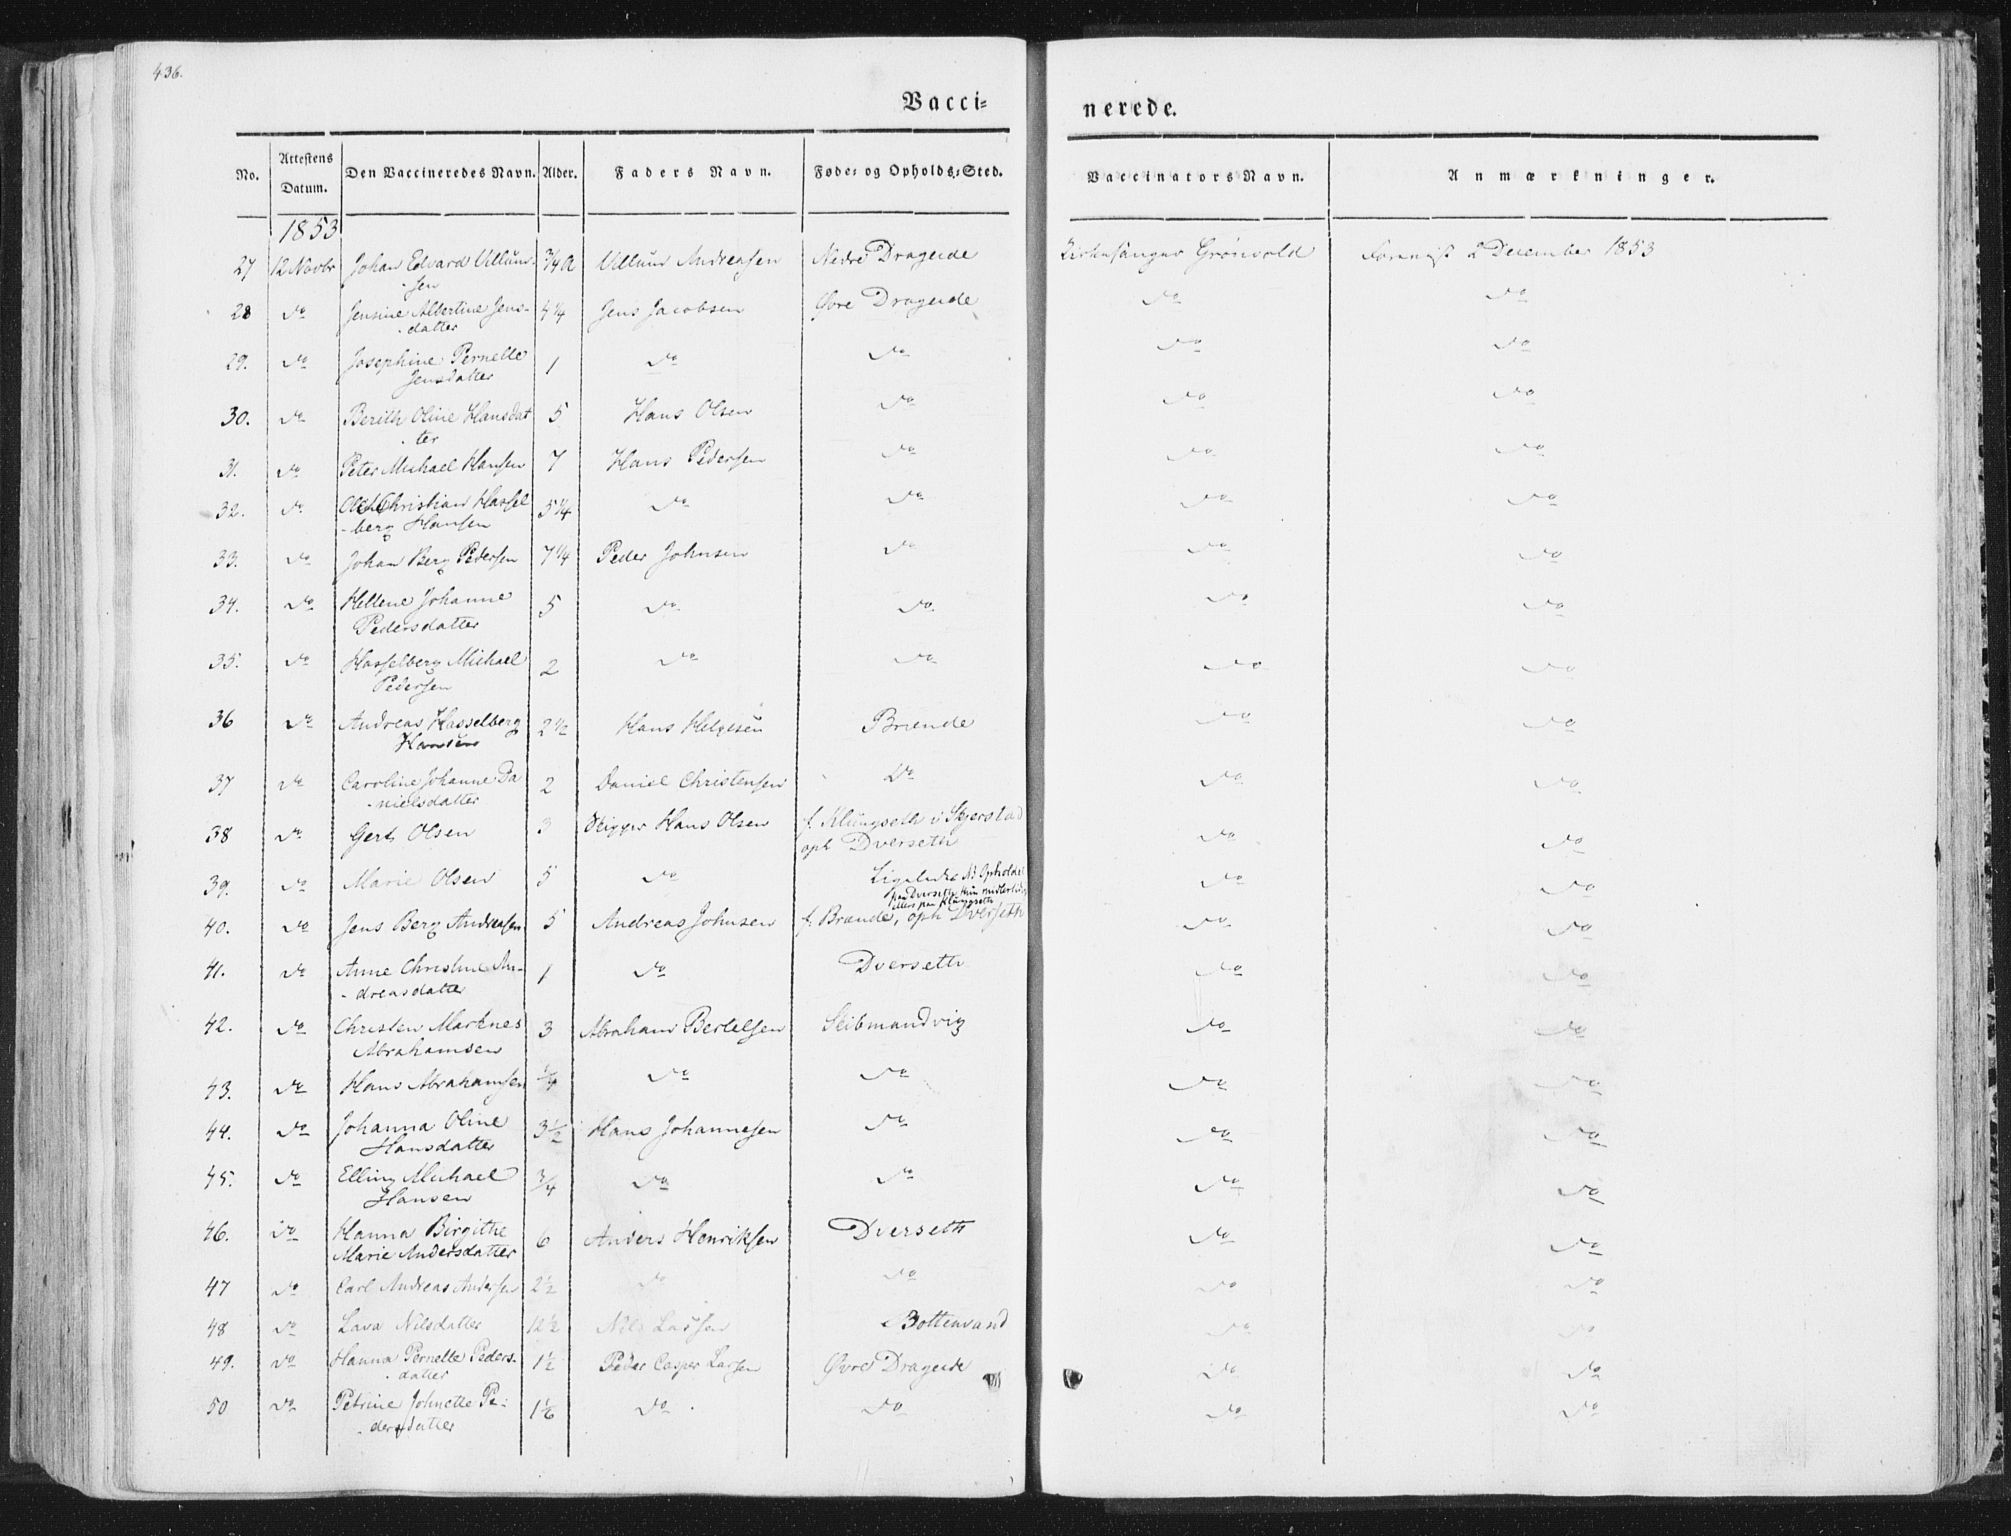 436.
Vacci=
nerede.
No. Attestens Datum. Den Vaccineredes Navn. Alder. Faders Navn. Føde= og Opholds=Sted. Vaccinators Navn. Anmærkninger.
1853
27 12 Novbr Johan Edvard Villum- 3/4 A Villum Andreasen Nedre Drageide Kirkesanger Grönvold Forevist 2 December 1853
sen
28 do Jensine Albertine Jens- 4 1/4 Jens Jacobsen Øvre Drageide do do
datter
29. do Josephine Pernelle 1 do do do do
Jensdatter
30. do Berith Oline Hansdat 5 Hans Olsen do do do
ter
31. do Peter Michael Hansen 7 Hans Pedersen do do do
32. do Christian Hassel 5 1/4 do do do do
-berg Hansen
33. do Johan Berg Pedersen 7 1/4 Peder Johnsen do do do
34. do Hellene Johanne 5 do do do do
Pedersdatter
35. do Hasselberg Michael 2 do do do do
Pedersen
36 do Andreas Hasselberg 2 1/2 Hans Helgesen Brænde do do
Hansen
37 do Caroline Johanne Da 2 Daniel Christensen do do do
nielsdatter
38 do Gert Olsen 3 Hans Olsen f. Klungseth i Skjerstad do do
oph Dverseth
39. do Marie Olsen 5 do Ligeledes do do
paa Dverseth
eller paa Klungseth
40. do Jens Berg Andreasen 5 Andreas Johnsen f. Brænde, oph Dverseth do do
41. do Anne Christine An- 1 do Dverseth do do
-dreasdatter
42. do Christen Marknes 3 Abraham Bertelsen Skibmandvig do do
Abrahamsen
43. do Hans Abrahamsen 1/4 do do do do
44. do Johanna Oline 3 1/2 Hans Johannesen do do do
Hansdatter
45. do Elling Michael 3/4 do do do do
Hansen
46. do Hanna Birgithe 6 Anders Henriksen Dverseth do do
Marie Andersdatter
47 do Carl Andreas Andersen 2 1/2 do do do do
48 do Lava Nilsdatter 12 1/2 Nils Larsen Bottenvand do do
49. do Hanna Pernelle Peders- 1 1/2 Peder Casper Larsen Øvre Drageide do do
datter
50 do Petrine Johnette Pe- 1 1/6 do do do do
dersdatter